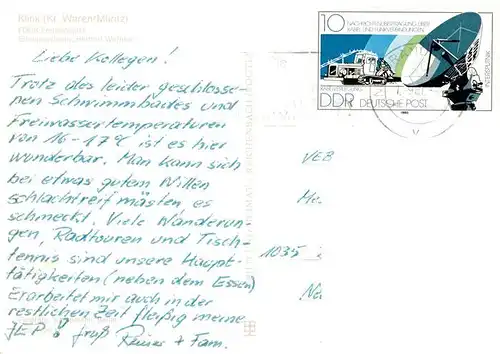 Klink (Kr. Waren/Müritz)
FDGB-Erholungsheim
10
NACHRICHTENÜBERTRAGUNG ÜBER
KABEL UND FUNKVERBINDUNGEN
INTERSPUTNIK
KABELVERLEGUNG
DDR DEUTSCHE POST
1980
Liebe Kollegen!
Trotz des leider geschlosse-
nen Schwimmbades und
Freiwassertemperaturen
von 16-17°C ist es hier
wunderbar. Man kann sich
bei etwas gutem Willen
schlachtreif mästen es
schmeckt. Viele Wanderun-
gen, Radtouren und Tisch-
tennis sind unsere Haupt-
tätigkeiten (neben dem Essen)
Erarbeitet mir auch in der
restlichen Zeit fleißig meine
JEP! Gruß Reiner + Fam.
VEB
Me
1035
Ne